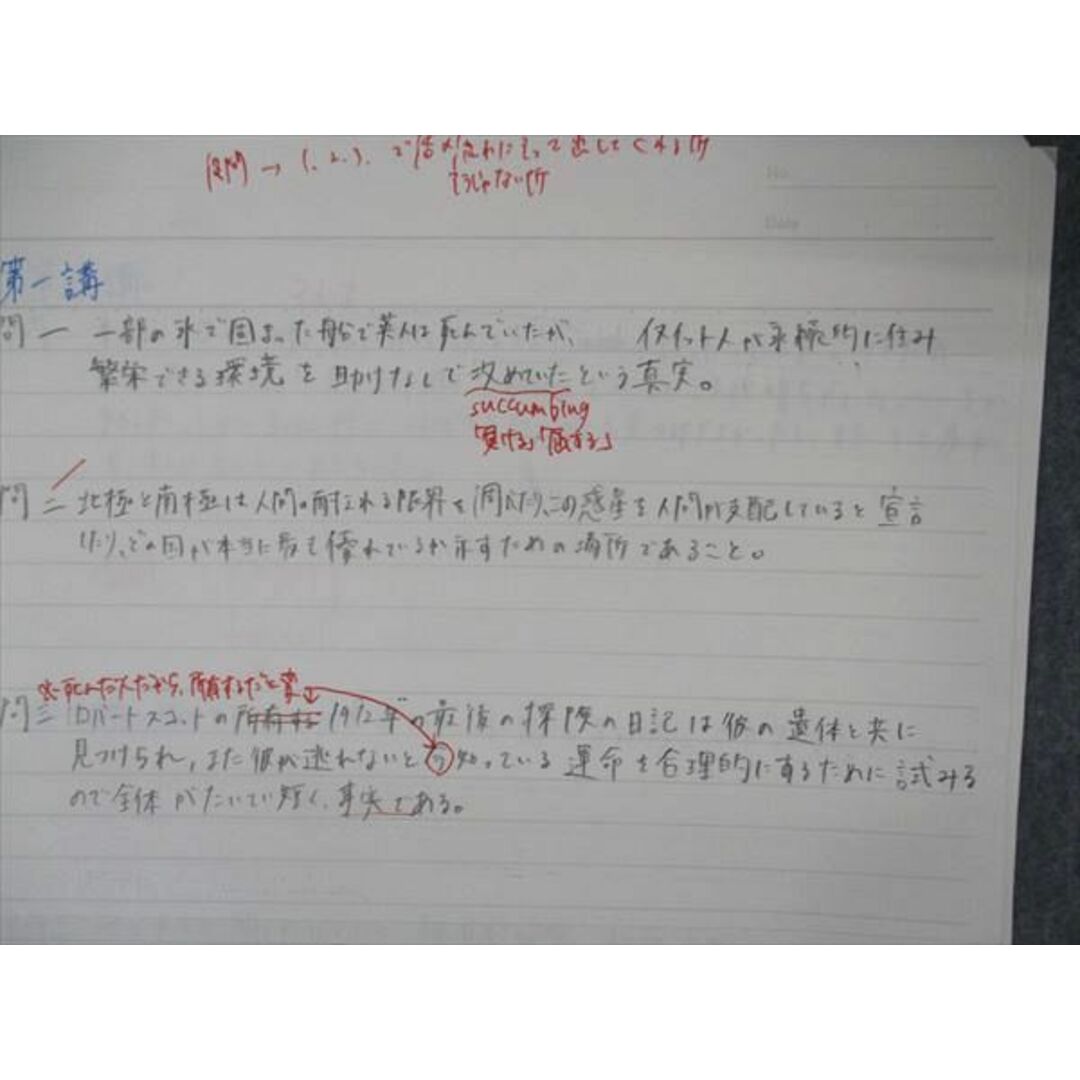 設問 → 1. 2. 3. で答え
そうじゃない所
No.
Date
第一講
問一 一部の氷で固まった船で英人は死んでいたが、 イヌイット人が永極的に住み
繁栄できる環境を助けなしで攻めていたという真実。
succumbing
「負ける」「屈する」
問二 北極と南極は人間の耐えれる限界を調べたり、この惑星を人間が支配していると宣言
したり、どの国が本当に最も優れているか示すための場所であること。
※死んだ人だから、所有するだと変
問三 ロバートスコットの所有する1912年の最後の探険の日記は彼の遺体と共に
見つけられ、また彼が逃れないと知っている運命を合理的にするために試みる
ので全体がたいてい短く、事実である。